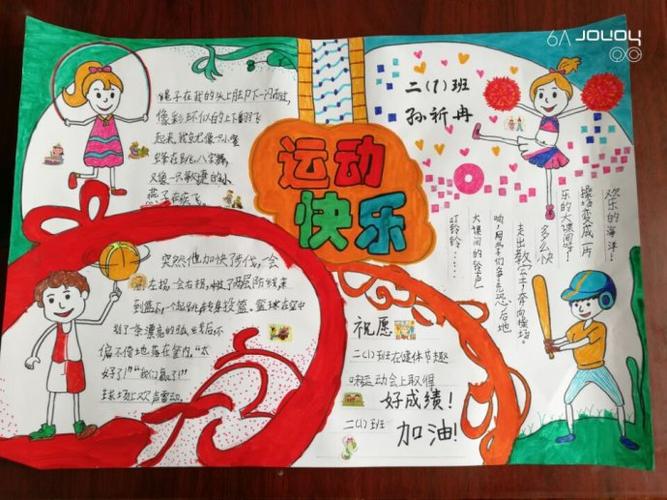 绳子在我的头上脚下闪过,
像彩环似的上下翻飞
起来,我就像一只小蜜
蜂在跳八字舞,
又像一只敏捷的小
燕子在疾飞。
运动
快乐
二(1)班
孙祈冉
6A
欢乐的海洋!
操场变成一片
乐的大课间呀!
多么快
走出教室,奔向操场。
响,同学们争先恐后地
大课间的铃声
叮铃铃……
突然他加快了步伐,一会
左拐,一会右拐,
到篮下,一个起跳,转身投篮,篮球在空中
划了一条漂亮的弧线后
偏不倚地落在筐内。“太
好了!”“我们赢了!”
球场上欢声雷动。
祝愿
二(1)班在健体节趣
味运动会上取得
好成绩!
二(1)班
加油!